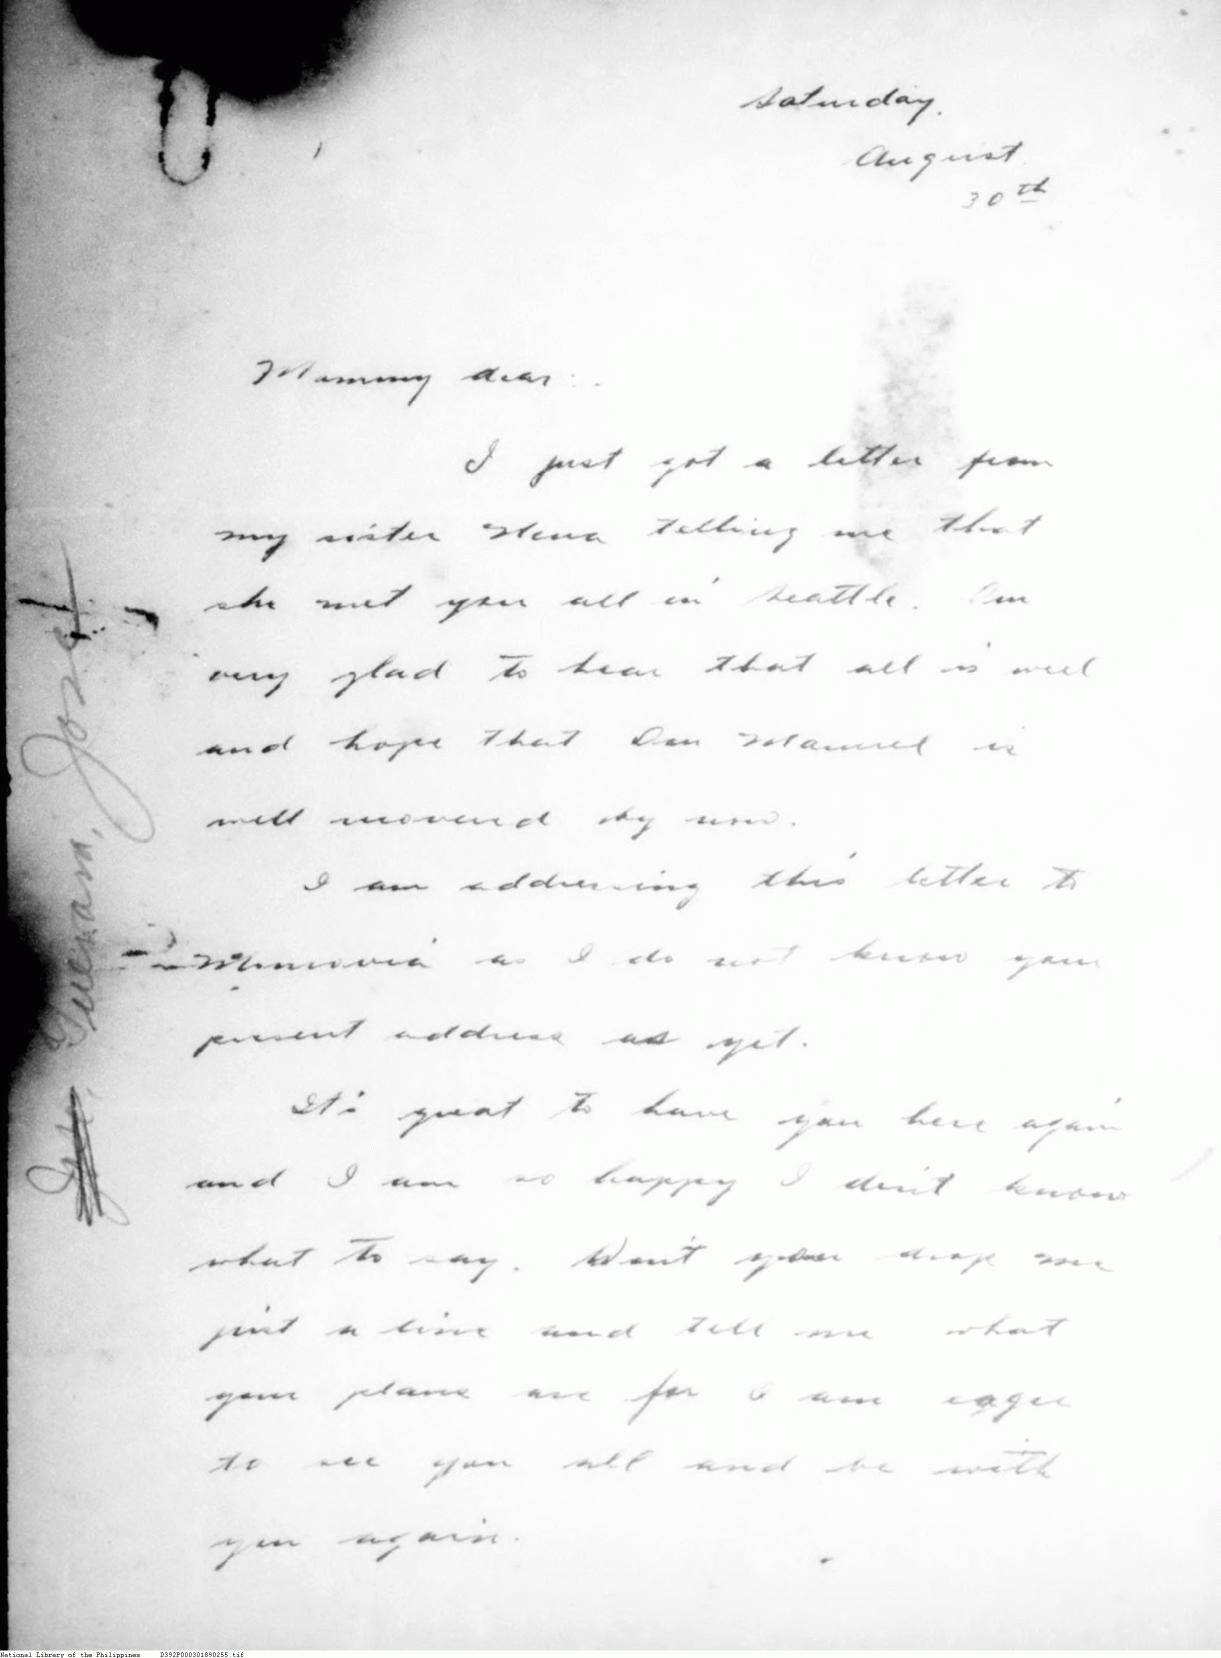 Saturday.
August
30th
Mommy dear:
I just got a letter from
my sister Nena telling me that
she met you all in Seattle. I'm
very glad to hear that all is well
and hope that Don Manuel is
well recovered by now.
I am addressing this letter to
Monrovia as I do not know your
present address as yet.
It's great to have you here again
and I am so happy I don't know
what to say. Won't you drop me
just a line and tell me what
your plans are for I am eager
to see you all and be with
you again.
Tuerann, José
National Library of the Philippines D392P000301890255.tif